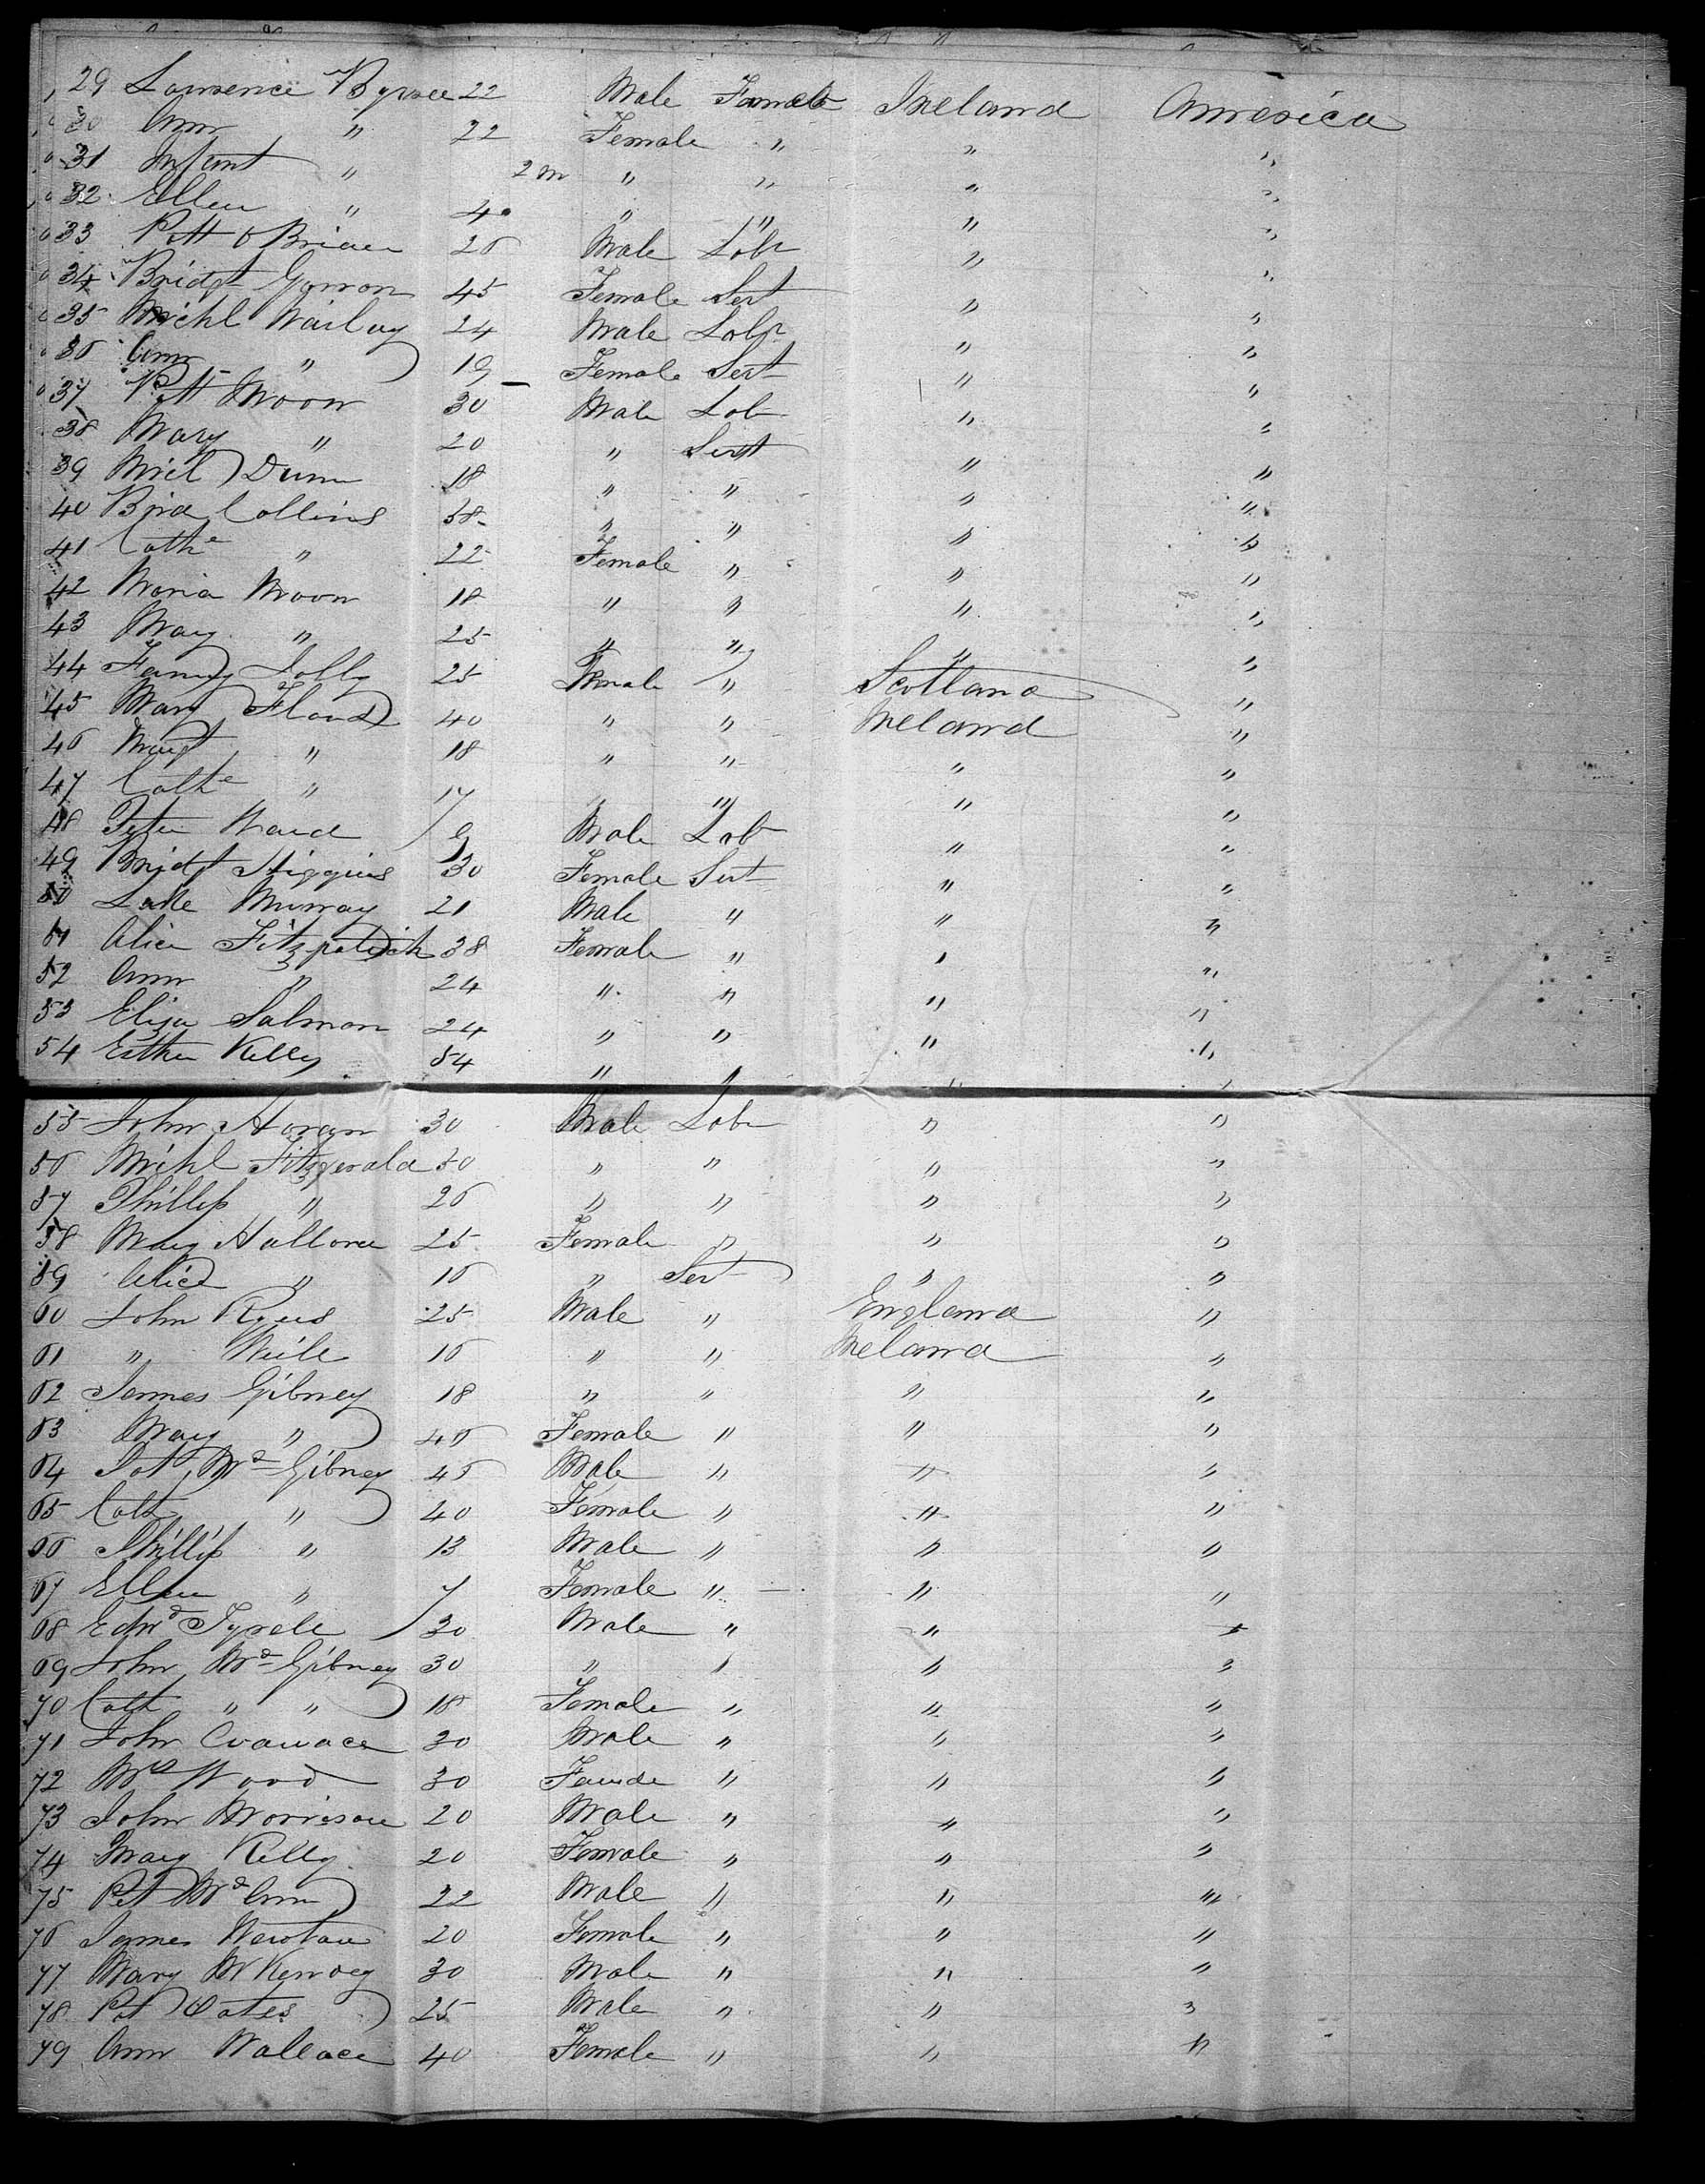 29 Lawrence Byrne 22 Male Farmer Ireland America
30 Ann " 22 Female " " "
31 Infant " 2 m " " " "
32 Ellen " 4 " " " "
33 Patt O Brien 26 Male Labr " "
34 Bridgt 45 Female Sert " "
35 Michl 24 Male Labr " "
36 Ann " 19 Female Sert " "
37 Patt Moon 30 Male Lab " "
38 Mary " 20 " Sert " "
39 Micl Dunn 18 " " " "
40 Collins 38 " " " "
41 Cathe " 22 Female " " "
42 Maria Moon 18 " " " "
43 Mary " 25 " " " "
44 Fanny Jolly 25 Female " Scotland "
45 Mary Flood 40 " " Ireland "
46 Margt " 18 " " " "
47 Cathe " 17 " " " "
48 Peter Ward 19 Male Lab " "
49 Bridgt Higgins 30 Female Sert " "
50 Luke Murray 21 Male " " "
51 Alice Fitzpatrick 38 Female " " "
52 Ann " 24 " " " "
53 Eliza Salmon 24 " " " "
54 Esther Kelly 54 " " " "
55 John Horan 30 Male Labr " "
56 Michl Fitzgerald 50 " " " "
57 Phillip " 26 " " " "
58 Mary Halloran 25 Female " " "
59 Alice " 16 " Sert " "
60 John 25 Male " England "
61 " 16 " " Ireland "
62 James Gibney 18 " " " "
63 Mary " 46 Female " " "
64 Pat Mc Gibney 45 Male " " "
65 Cath " 40 Female " " "
66 Phillip " 13 Male " " "
67 Ellen " 7 Female " " "
68 Edwd Tyrele 30 Male " " "
69 John Mc Gibney 30 " " " "
70 Cath " " 18 Female " " "
71 John 30 Male " " "
72 Mrs Wood 30 " " "
73 John Morrison 20 Male " " "
74 Mary Kelly 20 Female " " "
75 Pat Mc Ann 22 Male " " "
76 James Newton 20 Female " " "
77 Mary 30 Male " " "
78 Pat Oates 25 Male " " "
79 Ann Wallace 40 Female " " "